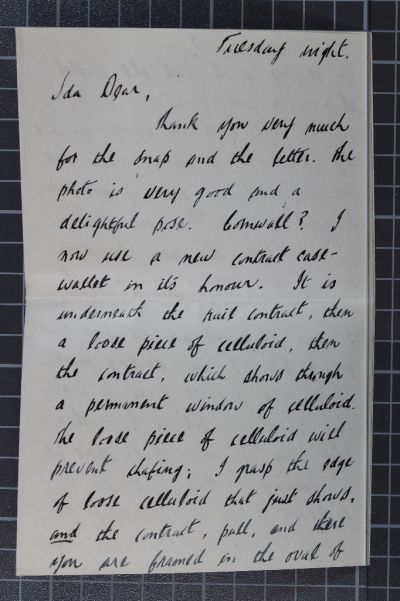 Tuesday night.
Ida Dear,
Thank you very much
for the snap and the letter. The
photo is very good and a
delightful pose. Cornwall? I
now use a new contract case-
wallet in its honour. It is
underneath the rail contract, then
a loose piece of celluloid, then
the contract, which shows through
a permanent window of celluloid.
The loose piece of celluloid will
prevent chafing; I grasp the edge
of loose celluloid that just shows,
and the contract, pull, and there
you are framed in the oval of